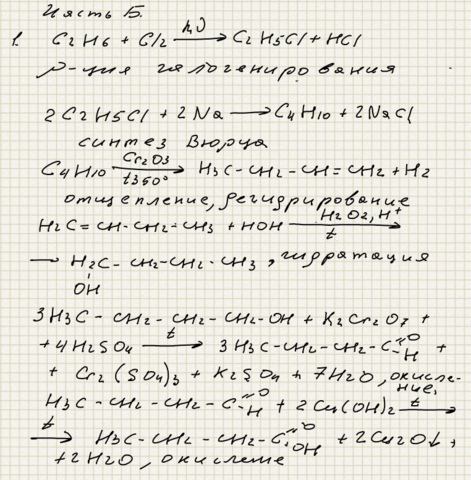 Часть Б.
1. C2H6 + Cl2 —hν→ C2H5Cl + HCl
р-ция галогенирования
2C2H5Cl + 2Na → C4H10 + 2NaCl
синтез Вюрца
C4H10 —Cr2O3, t350°→ H3C-CH2-CH=CH2 + H2
отщепление, дегидрирование
H2C=CH-CH2-CH3 + HOH —H2O2, H+, t→
→ H2C-CH2-CH2-CH3, гидратация
OH
3H3C-CH2-CH2-CH2-OH + K2Cr2O7 +
+ 4H2SO4 —t→ 3H3C-CH2-CH2-C=O-H +
+ Cr2(SO4)3 + K2SO4 + 7H2O, окисление,
H3C-CH2-CH2-C=O-H + 2Cu(OH)2 —t→
—t→ H3C-CH2-CH2-C=O-OH + 2Cu2O↓ +
+ 2H2O, окислене